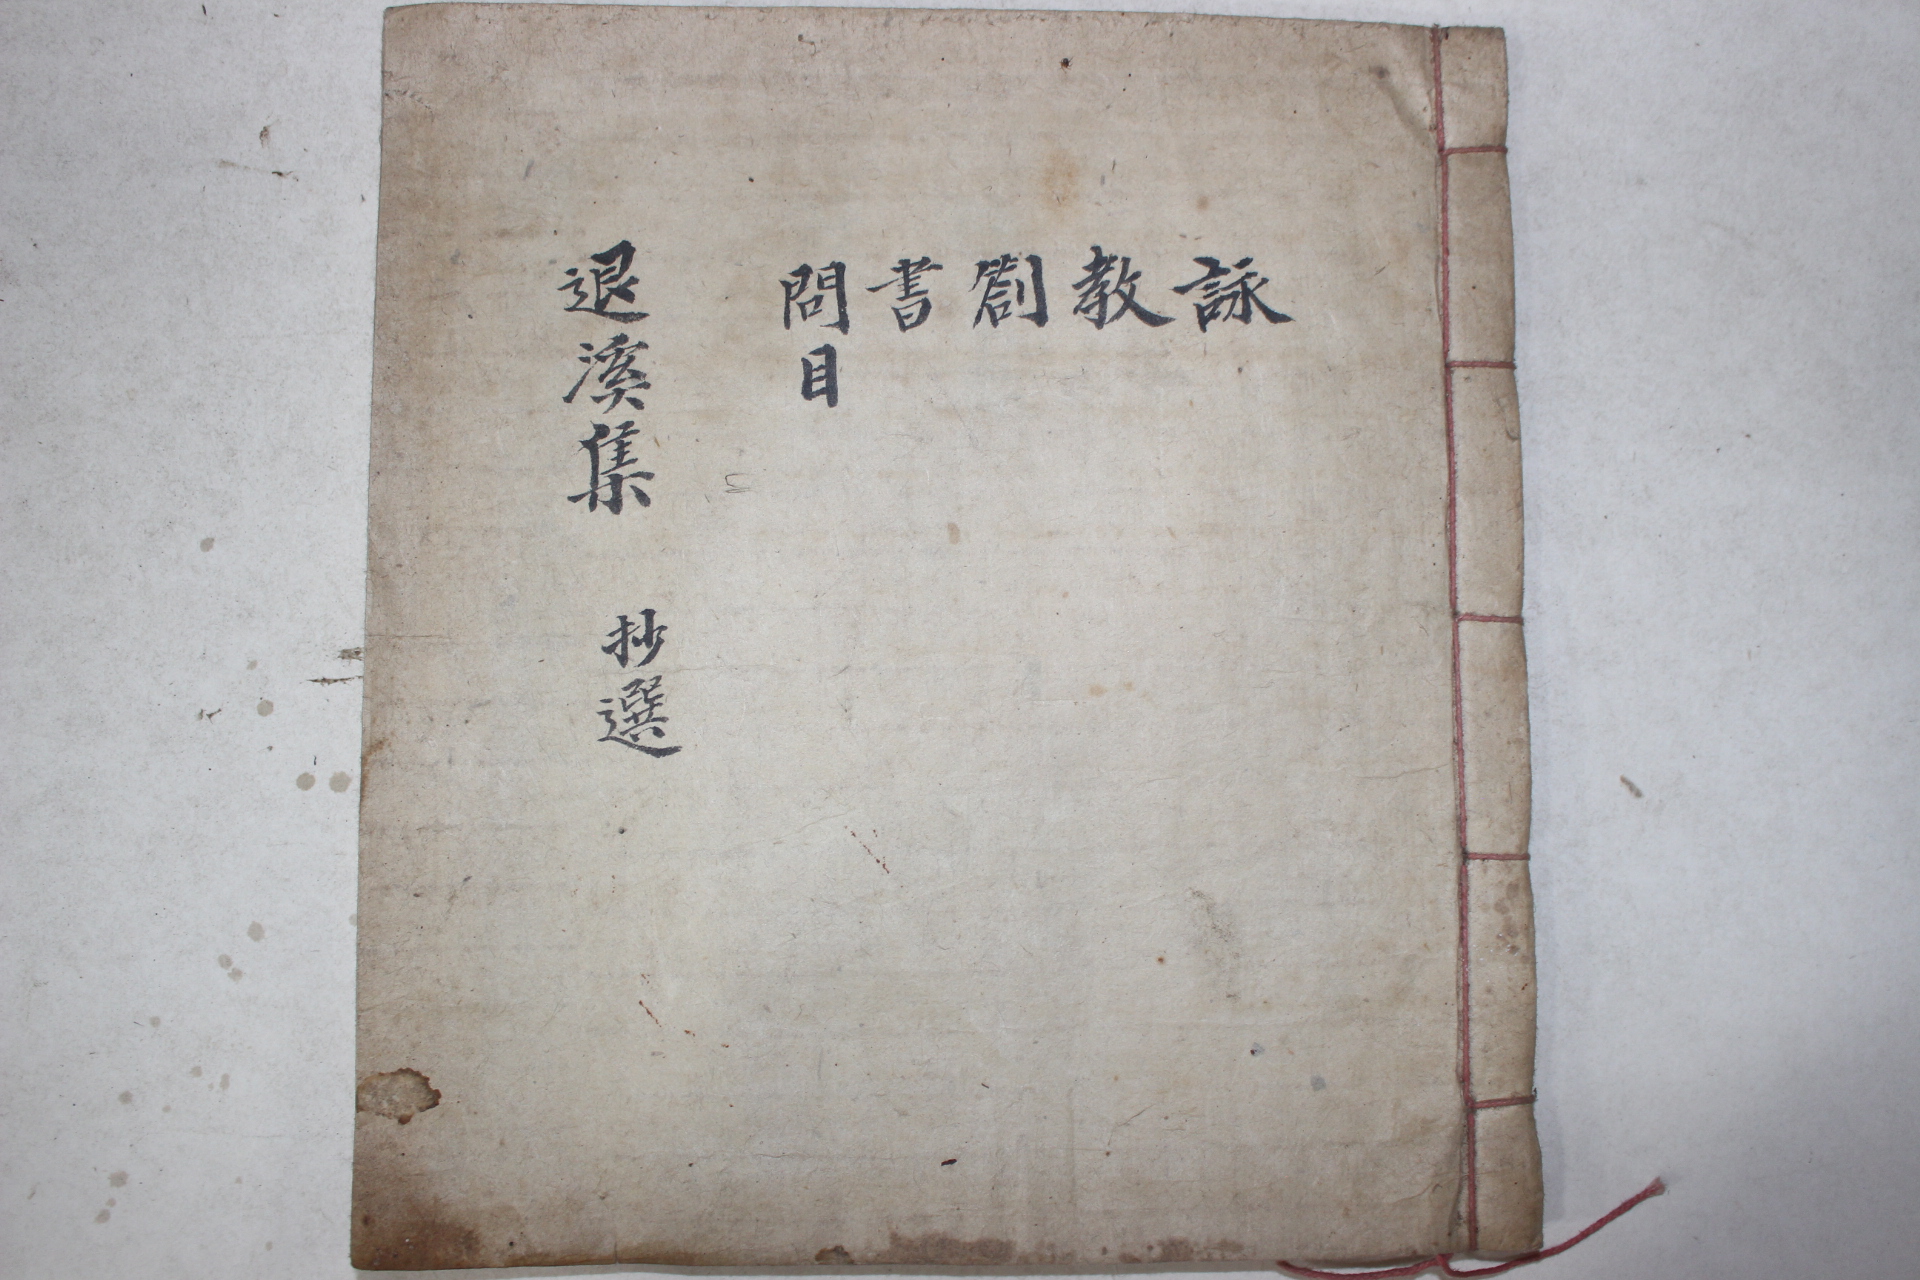 詠
教
箚
書
問目
退溪集 抄選